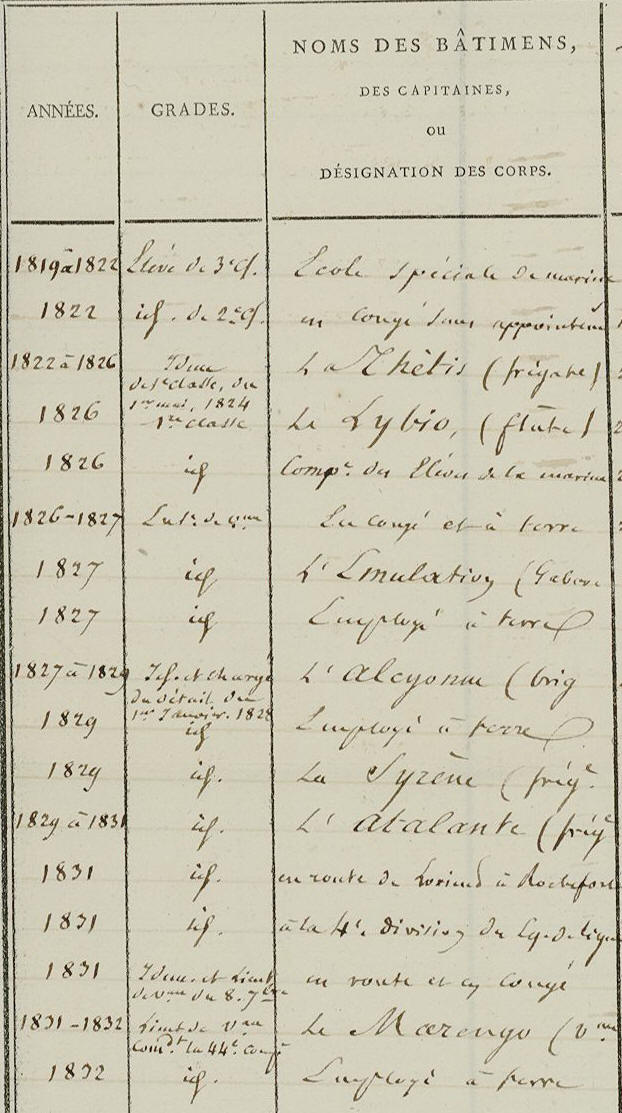 ANNÉES.
GRADES.
NOMS DES BÂTIMENS,
DES CAPITAINES,
OU
DÉSIGNATION DES CORPS.
1819 à 1822 Elève de 3e Cl. Ecole spéciale de marine
1822 id. de 2e Cl. en congé sans appointem
1822 à 1826 Idem La Thétis (frégate)
de 1e classe, du
1er mai, 1824
1826 1re classe Le Lybio, (flûte)
1826 id Comp.e des Elèves de la marine
1826-1827 En congé et à terre
1827 id L'Emulation (Gabare
1827 id Employé à terre
1827 à 1829 Id. et chargé L'Alcyonne (brig
du détail du
1er Janvier. 1828
1829 id Employé à terre
1829 id. La Syrène (frég.e
1829 à 1831 id. L'Atalante (frég
1831 id. en route de Lorient à Rochefort
1831 id. à la 4e division du Eq. de ligne
1831 Idem. et Lieut en route et en congé
de vau du 8. 7bre
1831-1832 Lieut de Vau Le Marengo (Vau
Comdt la 44e Compe
1832 id. Employé à terre